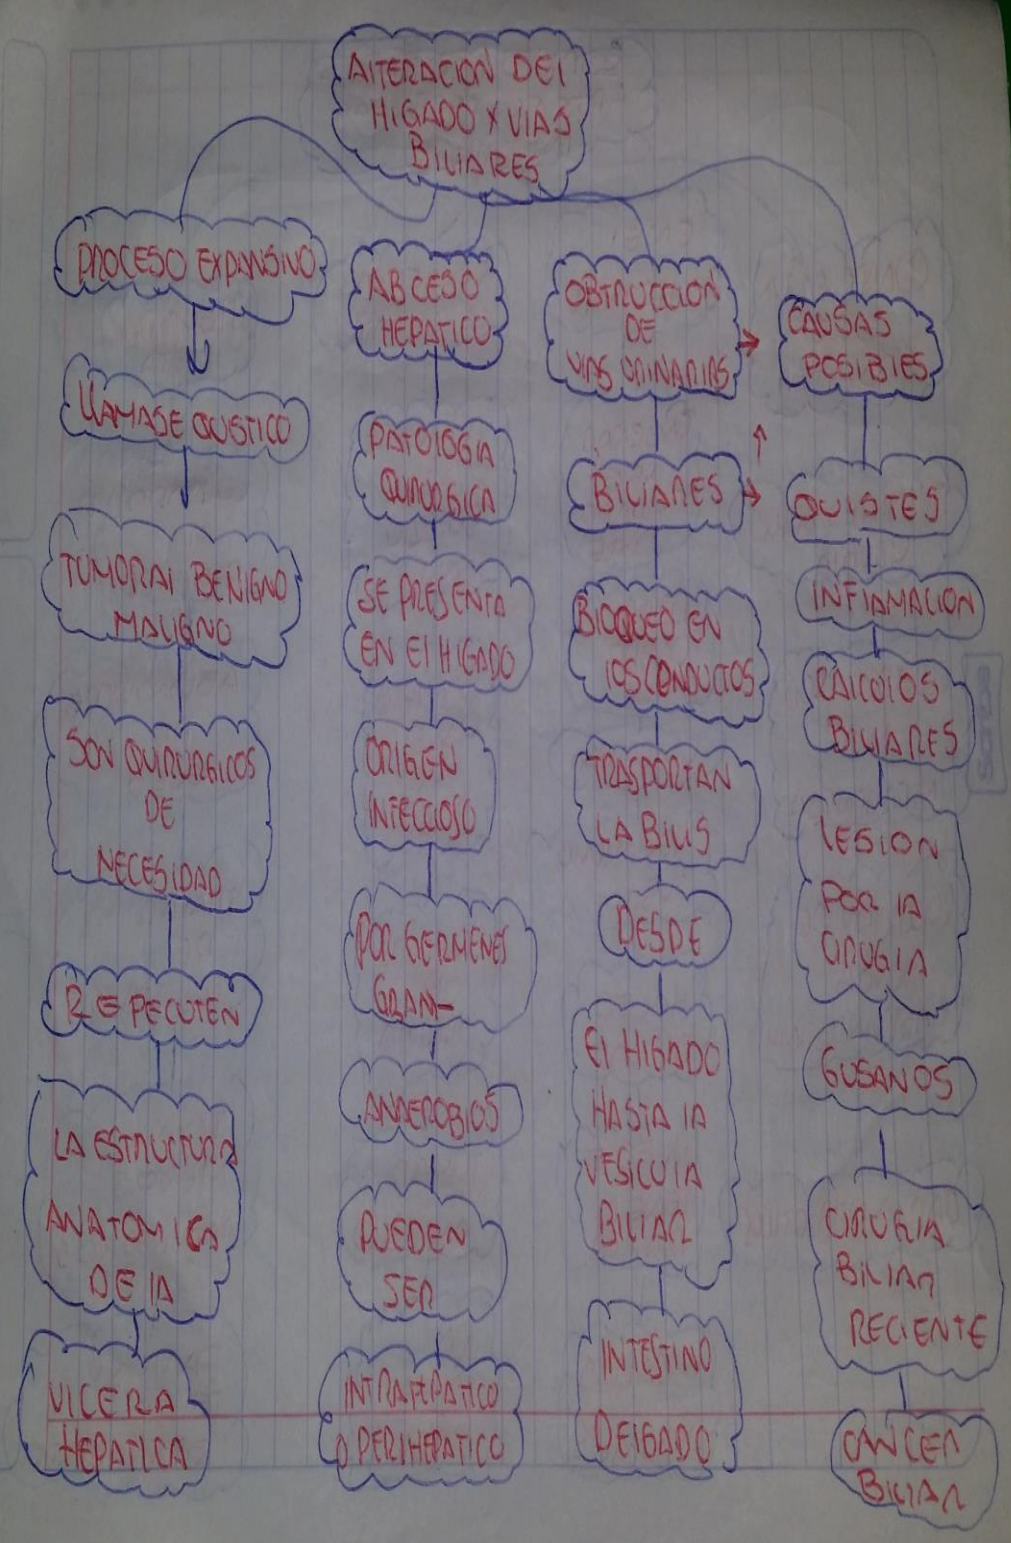 AlTERACION DEl
HIGADO Y VIAS
BILIARES
PROCESO EXPANSIVO
LLAMASE QUISTICO
TUMORAl BENIGNO
MALIGNO
SON QUIRURGICOS
DE
NECESIDAD
REPECUTEN
LA ESTRUCTURA
ANATOMICA
DE lA
VICERA
HEPATICA
ABCESO
HEPATICO
PATOLOGIA
QUIRURGICA
SE PRESENTA
EN El HIGADO
ORIGEN
INFECCIOSO
POR GERMENES
GRAM-
ANAEROBIOS
PUEDEN
SER
INTRAHEPATICO
O PERIHEPATICO
OBTRUCCION
DE
VIAS URINARIAS
BILIARES
BlOQUEO EN
lOS CONDUCTOS
TRASPORTAN
LA BILIS
DESDE
El HIGADO
HASTA lA
VESICUlA
BILIAR
INTESTINO
DElGADO
CAUSAS
POSIBlES
QUISTES
INFlAMACION
CAlCUlOS
BILIARES
lESION
POR lA
CIRUGIA
GUSANOS
CIRUGIA
BILIAR
RECIENTE
CANCER
BILIAR